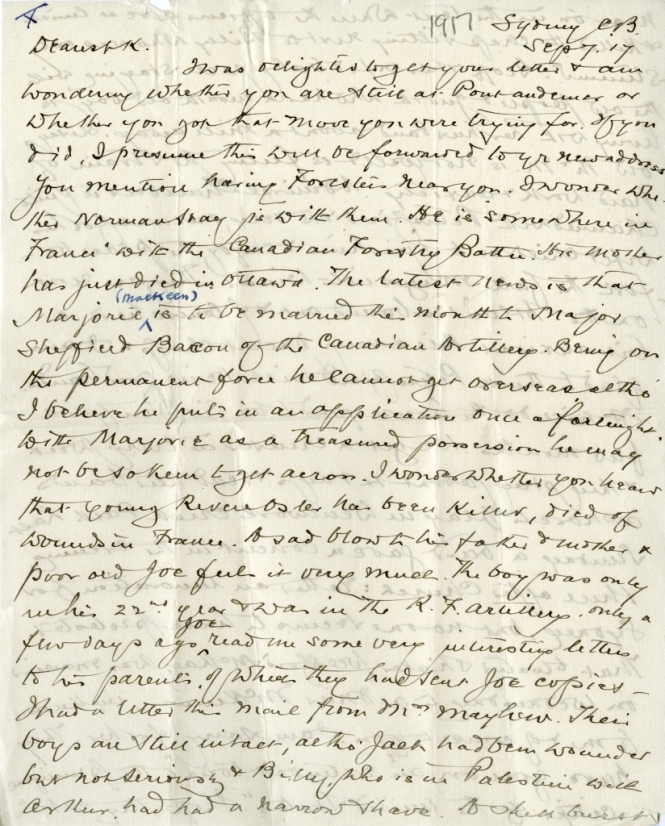 1917 Sydney C.B.
Sep 7. 17
Dearest K.
I was delighted to get your letter & am
wondering whether you are still at Pont audemer or
whether you got that move you were trying for. If you
did, I presume this will be forwarded to yr new address
You mention having Foresters near you. I wonder whe-
ther Norman is with them. He is somewhere in
France with the Canadian Forestry Battn. His mother
has just died in Ottawa. The latest news is that
(MacKeen)
Marjorie is to be married this month to Major
Sheffield Bacon of the Canadian Artillery. Being on
the permanent force he cannot get overseas, altho
I believe he puts in an application once a fortnight.
With Marjorie as a treasured possession he may
not be so keen to get across. I wonder whether you heard
that young Revere Osler has been killed, died of
wounds in France. A sad blow to his father & mother &
poor old Joe feels it very much. The boy was only
in his 22nd year & was in the R. F. artillery. Only a
few days ago Joe read me some very interesting letters
to his parents, of which they had sent Joe copies –
I had a letter this mail from Mrs Mayhew. Their
boys are still intact, altho Jack had been wounded
but not seriously & Billy, who is in Palestine with
Arthur, had had a narrow shave. A shell burst